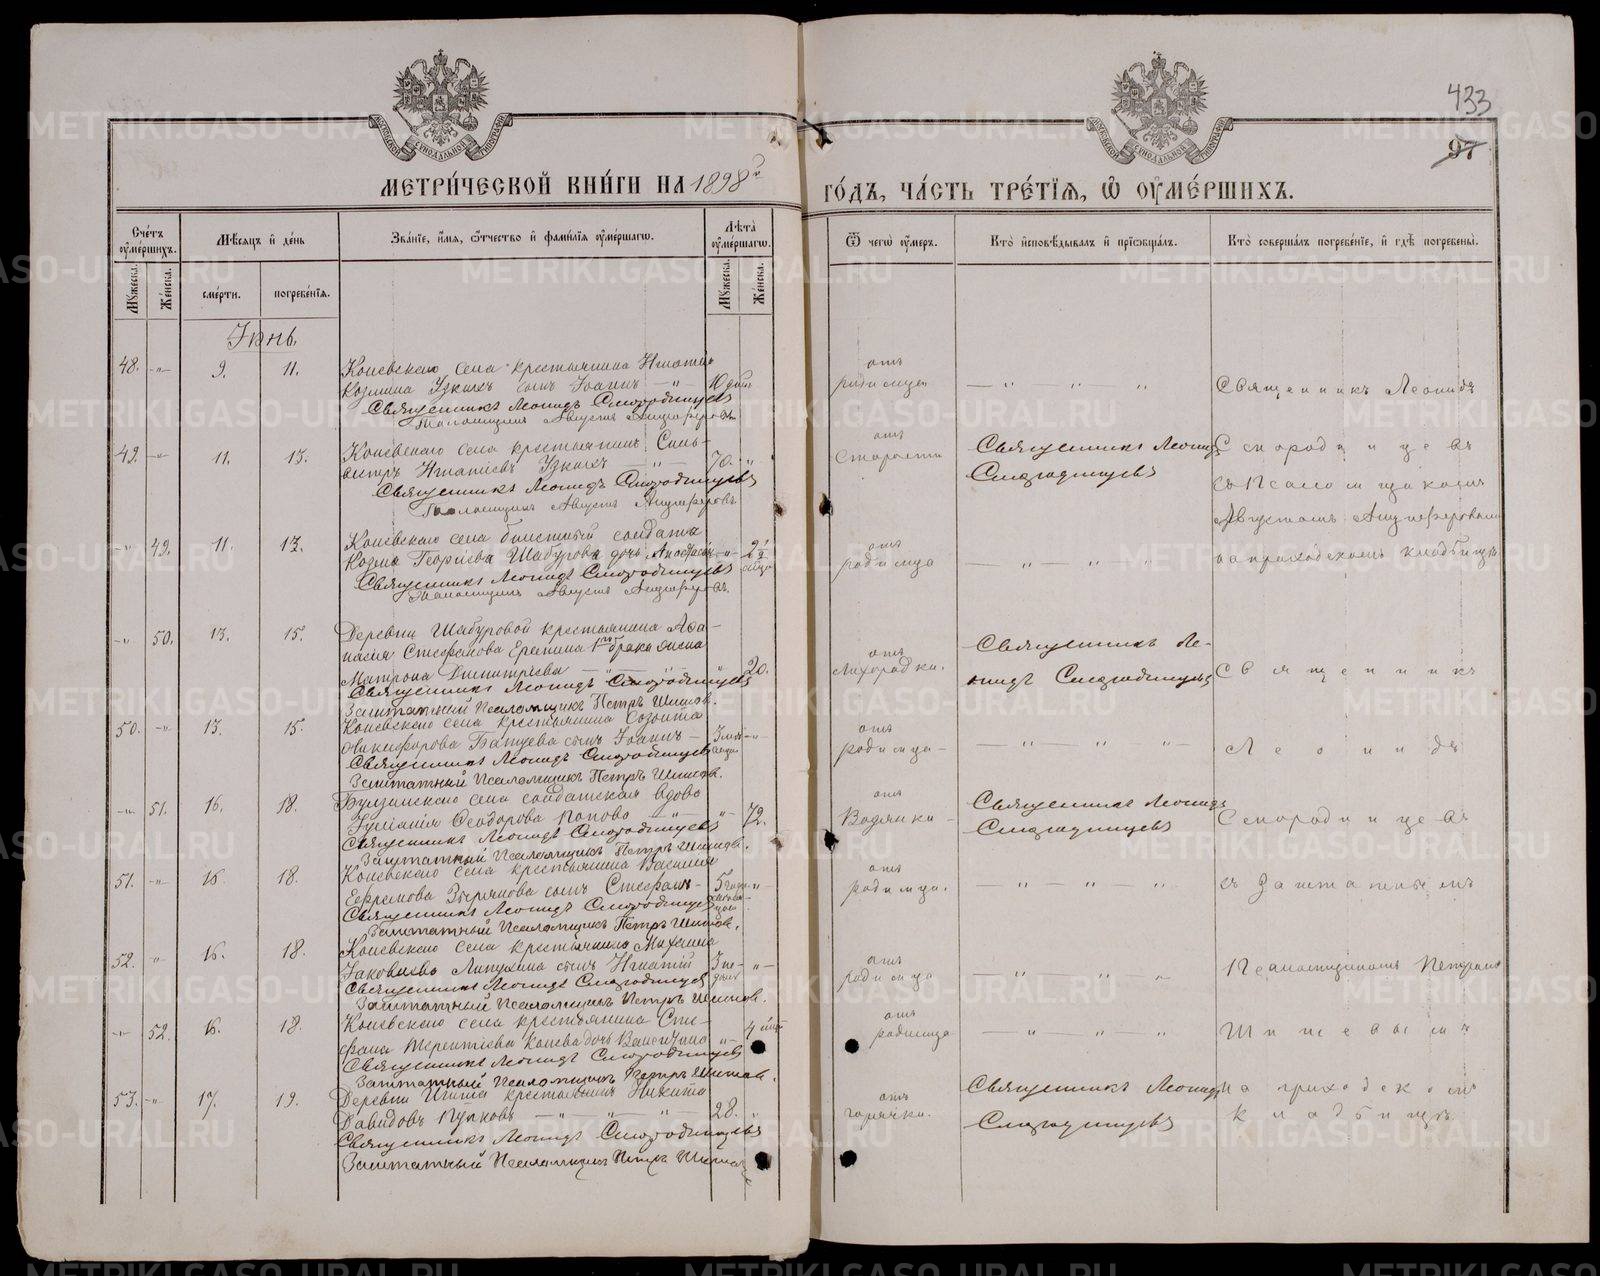 433
97
МОСКОВСКОЙ СѴНОДАЛЬНОЙ ТИПОГРАФІИ
МОСКОВСКОЙ СѴНОДАЛЬНОЙ ТИПОГРАФІИ
МЕТРИ́ЧЕСКОЙ КНИ́ГИ НА 1898й
ГО́ДЪ, ЧА́СТЬ ТРЕ́ТІѦ, Ѡ҆ ОУ҆МЕ́РШИХЪ.
Сче́тъ оу҆ме́ршихъ.
Мꙋжеска.
Же́нска.
Мѣ́сѧцъ и҆ де́нь
сме́рти.
погребе́нїѧ.
Зва́нїе, и҆́мѧ, ѻ҆́тчество и҆ фами́лїѧ оу҆ме́ршагѡ.
Лѣ́та оу҆ме́ршагѡ.
Мꙋжеска.
Же́нска.
Ѿ чегѡ̀ оу҆́меръ.
Кто̀ и҆сповѣ́дывалъ и҆ прїѻбща́лъ.
Кто̀ соверша́лъ погребе́нїе, и҆ гдѣ̀ погребены̀.
Іюнь.
48. -"- 9. 11. Коневскаго села крестьянина Игнатія
Козмина Узкихъ сынъ Іоаннъ -"- 10 дней
Священникъ Леонидъ Смородинцевъ
Псаломщикъ Августъ Анциферовъ
отъ
родимца
— " " "
Священникъ Леонидъ
49. -"- 11. 13. Коневскаго села крестьянинъ Силь-
вестръ Игнатіевъ Узкихъ — " — 70. "
Священникъ Леонидъ Смородинцевъ
Псаломщикъ Августъ Анциферовъ
отъ
старости
Священникъ Леонидъ
Смородинцевъ
Смородинцевъ
съ Псаломщикомъ
Августомъ Анциферовымъ
-"- 49. 11. 13. Коневскаго села солдата
Козмы Георгіева Шабурова дочь Анастасія -"- 2 1/2
Священникъ Леонидъ Смородинцевъ
Псаломщикъ Августъ Анциферовъ.
отъ
родимца
— " — " — "
на приходскомъ кладбищѣ
-"- 50. 13. 15. Деревни Шабуровой крестьянина Аѳа-
насія Стефанова Еремина 1го брака жена
Матрона Димитріева — " — " 20.
Священникъ Леонидъ Смородинцевъ
Заштатный Псаломщикъ Петръ Шишовъ.
отъ
лихорадки.
Священникъ Ле-
онидъ Смородинцевъ
Священникъ
50. -"- 13. 15. Коневскаго села крестьянина Созонта
Никифорова сынъ Іоаннъ -
Священникъ Леонидъ Смородинцевъ
Заштатный Псаломщикъ Петръ Шишовъ.
отъ
родимца -
— " — " "—
Леонидъ
-"- 51. 16. 18. села солдатская вдова
Іуліанія Ѳеодорова Попова — " — " 72.
Священникъ Леонидъ Смородинцевъ
Заштатный Псаломщикъ Петръ Шишовъ.
отъ
Водянки -
Священникъ Леонидъ
Смородинцевъ
Смородинцевъ
51. -"- 16. 18. Коневскаго села крестьянина Василія
Ефремова Зырянова сынъ Стефанъ - 5
Священникъ Леонидъ Смородинцевъ
Заштатный Псаломщикъ Петръ Шишовъ.
отъ
родимца.
— " — " — "
съ Заштатнымъ
52. " 16. 18. Коневскаго села крестьянина
Іаковлева Липухина сынъ Игнатій 3 не-
Священникъ Леонидъ Смородинцевъ
Заштатный Псаломщикъ Петръ Шишовъ.
отъ
родимца
— " " "
Псаломщикомъ Петромъ
-"- 52. 16. 18. Коневскаго села крестьянина Сте-
фана Терентіева Конева дочь Валентина " 4
Священникъ Леонидъ Смородинцевъ
Заштатный Псаломщикъ Петръ Шишовъ.
отъ
родимца
— " — " — "
Шишовымъ
53. -"- 17. 19. Деревни крестьянинъ Никита
Давидовъ — " — " — 28. "
Священникъ Леонидъ Смородинцевъ
Заштатный Псаломщикъ Петръ Шишовъ
отъ
горячки.
Священникъ Леонидъ
Смородинцевъ
на приходскомъ
кладбищѣ
METRIKI.GASO-URAL.RU